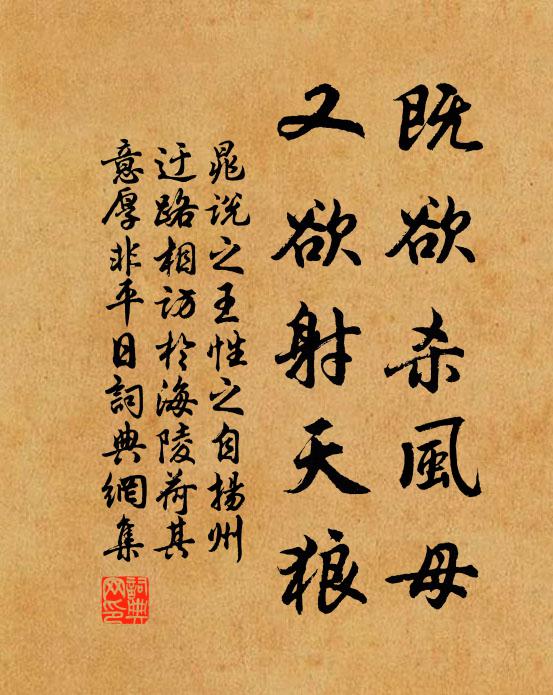 既欲杀風母
又欲射天狼
晁说之王性之自揚州
迂路相访於海陵荷其
意厚非平日詞典網集
詞典
网印